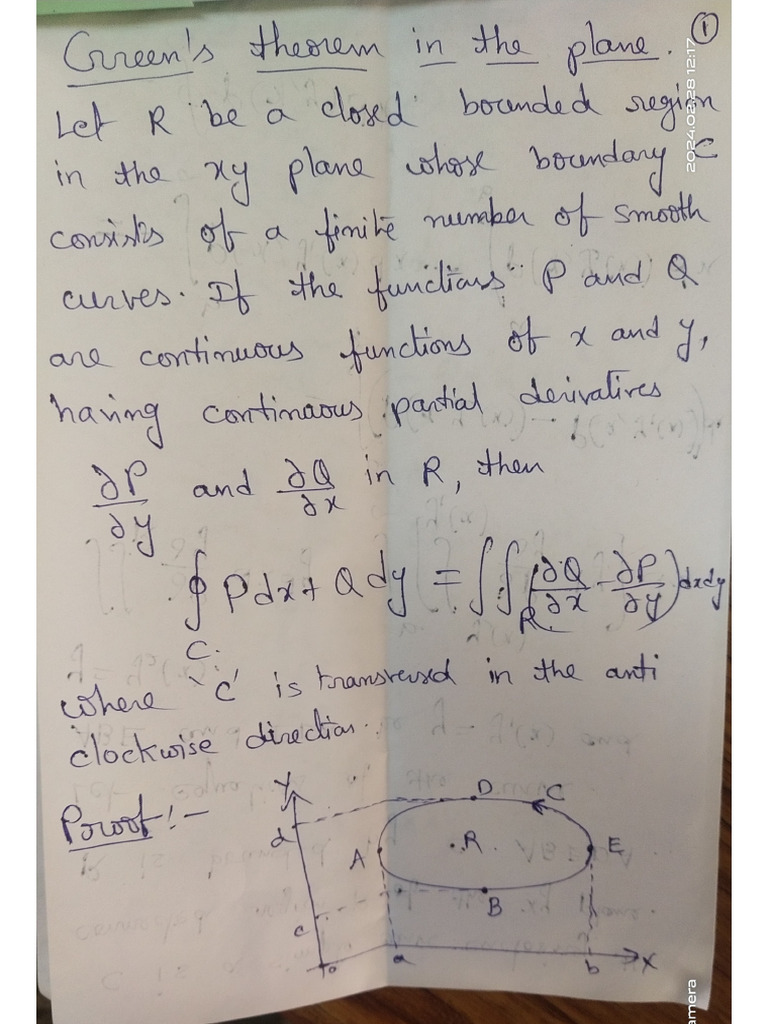 Green's theorem in the plane. ①
Let R be a closed bounded region
in the xy plane whose boundary C
consists of a finite number of smooth
curves. If the functions P and Q
are continuous functions of x and y,
having continuous partial derivatives
∂P/∂y and ∂Q/∂x in R, then
∮_C Pdx + Qdy = ∬_R (∂Q/∂x - ∂P/∂y) dxdy
where 'C' is transversed in the anti
clockwise direction.
Proof:-
Y D C
d
A .R. E
B
c
o a b X
2024.02.28 12:17
amera